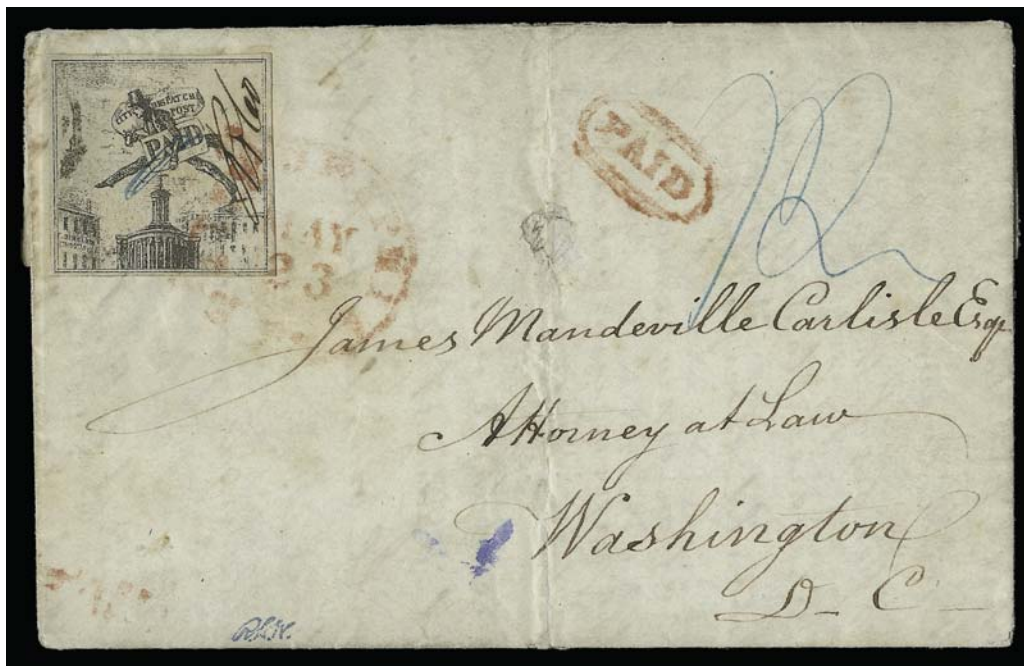 CITY DISPATCH
POST
PAID
PAID
MAY
23
James Mandeville Carlisle Esqr
Attorney at Law
Washington
D. C.
R.L.N.